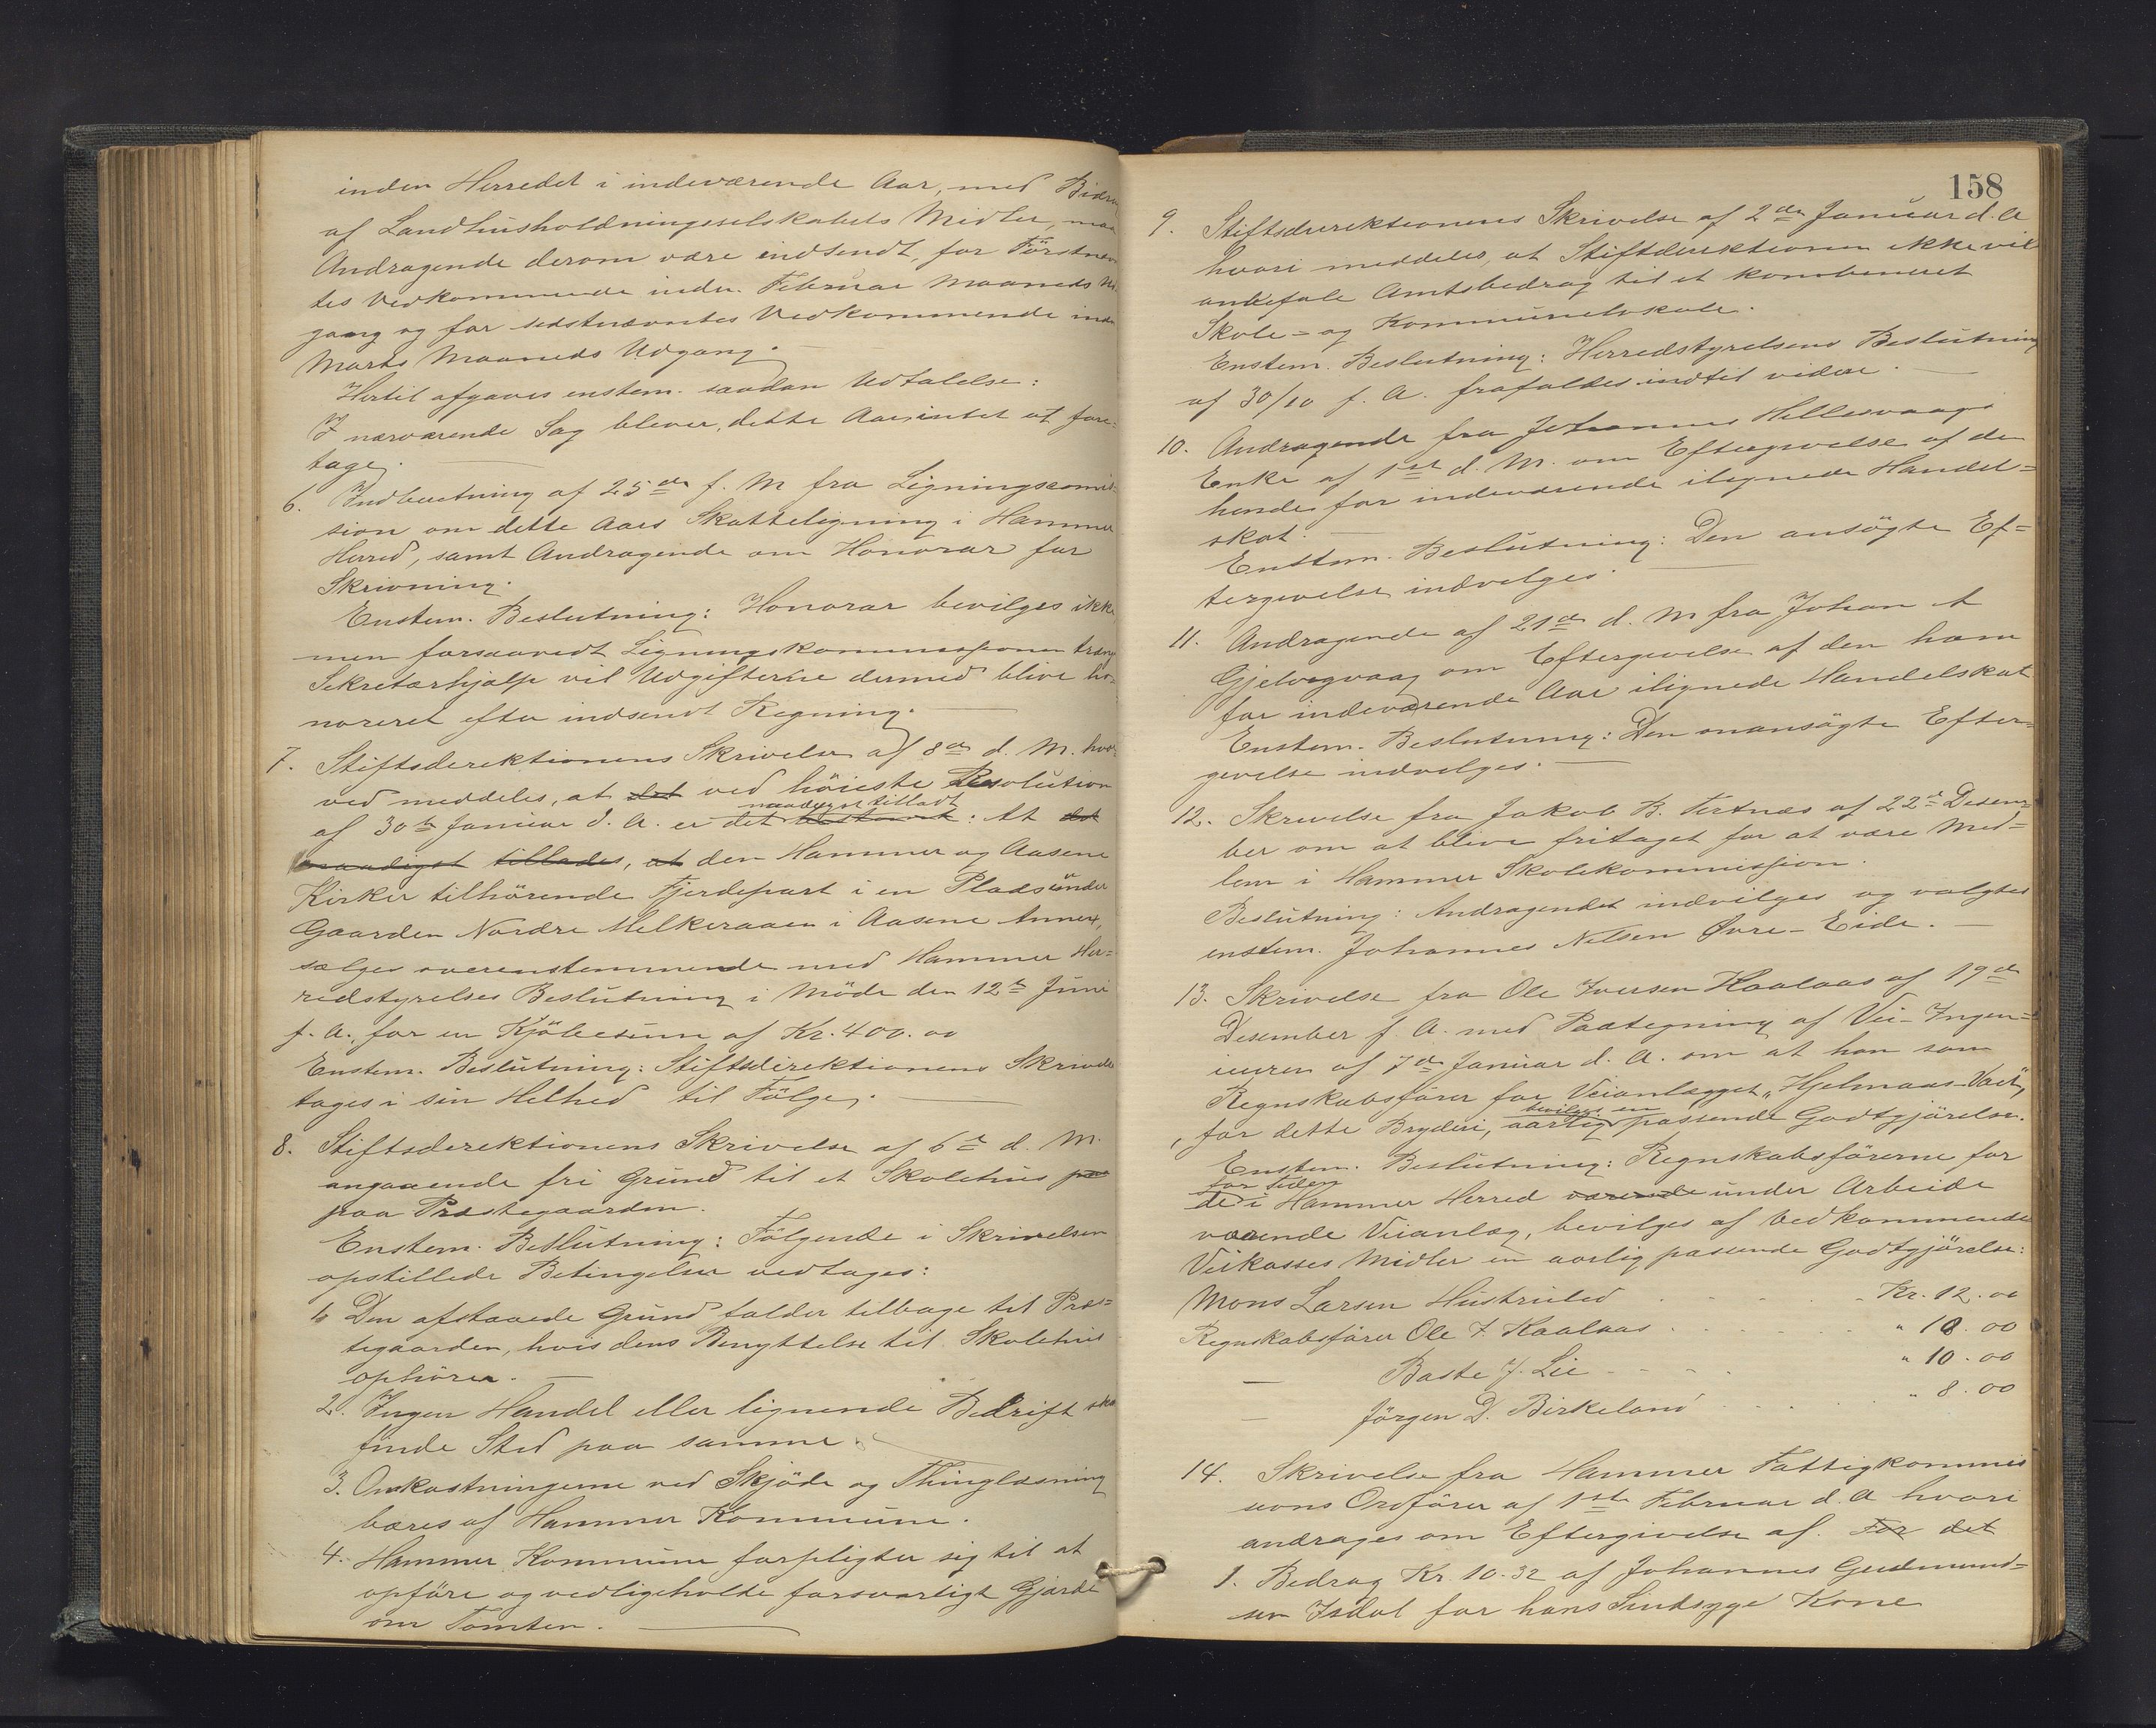 inden Herredet i indeværende Aar, med Bidrag
af Landhusholdningsselskabets Midler, maa
Andragende derom være indsendt, for Förstnæv
tes Vedkommende inden Februar Maaneds Ud
gang og for sidstnævntes Vedkommende inden
Marts Maaneds Udgang.
Hertil afgaves enstem. saadan Udtalelse:
I nærværende Sag bliver, dette Aar, intet at fore=
tage.
6. Indberetning af 25de f. M fra Ligningscomis=
sion om dette Aars Skatteligning i Hammer
Herred, samt Andragende om Honorar for
Skrivning.
Enstem. Beslutning: Honorar bevilges ikke
men forsaavidt Ligningskommissionen træng
Sekretærhjælp vil Udgifterne dermed blive ho=
noreret efter indsendt Regning.
7. Stiftsdirektionens Skrivelse af 8de d. M. hvor
ved meddeles, at det ved höieste Resolution
naadigst tilladt
af 30te Januar d. A. er det bestemt: At det
naadigst tillades, at den Hammer og Aasene
Kirker tilhörende Fjerdepart i en Plads under
Gaarden Nordre Melkeraaen i Aasene Annex,
sælges overenstemmende med Hammer Her=
redstyrelses Beslutning i Möde den 12te Juni
f. A., for en Kjöbesum af Kr. 400.00
Enstem. Beslutning: Stiftsdirektionens Skrivelse
tages i sin Helhed til Fölge.
8. Stiftsderektionens Skrivelse af 6te d. M.
angaaende fri Grund til et Skolehus paa
paa Præstegaarden.
Enstem. Beslutning: Fölgende i Skrivelsen
opstillede Betingelser vedtages:
1. Den afstaaede Grund falder tilbage til Præs=
tegaarden, hvis dens Benyttelse til Skolehus
ophörer.
2. Ingen Handel eller lignende Bedrift skal
finde Sted paa samme.
3. Omkostningerne ved Skjöde og Thinglæsning
bæres af Hammer Kommune.
4. Hammer Kommune forpligter sig til at
opföre og vedligeholde forsvarligt Gjærde
om Tomten.
158
9. Stiftsdirektionens Skrivelse af 2den Januar d. A
hvori meddeles, at Stiftdirektionen ikke vil
anbefale Amtsbedrag til et kombineret
Skole- og Kommunelokale.
Enstem. Beslutning: Herredstyrelsens Beslutning
af 30/10 f. A. frafaldes indtil videre.
10. Andragende fra Johannes Hillesvaags
Enke af 1ste d. M. om Eftergivelse af den
hende for indeværende ilignede Handel=
skat.
Enstem. Beslutning: Den ansögte Ef=
tergivelse indvilges.
11. Andragende af 21de d. M fra Johan A
Gjelvegvaag om Eftergivelse af den ham
for indeværende Aar ilignede Handelskat
Enstem. Beslutning: Den omansögte Efter=
gevelse indvilges.
12. Skrivelse fra Jakob B. Tertnæs af 22de Desem=
ber om at blive fritaget for at være Med=
lem i Hammer Skolekommission.
Beslutning: Andragendet indvilges og valgtes
enstem. Johannes Nilsen Øvre-Eide.
13. Skrivelse fra Ole Iversen Haalaas af 19de
Desember f. A. med Paategning af Vei-Ingen=
iuren af 7de Januar d. A. om at han som
Regnskabsförer for Veianlægget „Hjelmaas-Vaet",
bevilges en
, for dette Bryderi, aarlig passende Godtgjörelse.
Enstem. Beslutning: Regnskabsförerne for
for tiden
de i Hammer Herred værende under Arbeide
værende Veianlæg, bevilges af Vedkommende
Veikasses Midler en aarlig passende Godtgjörelse:
Mons Larsen Hustruled Kr. 12.00
Regnskabsförer Ole I Haalaas " 18.00
— Baste J. Lie " 10.00
— Jörgen D. Birkeland " 8.00
14. Skrivelse fra Hammer Fattigkommis
sions Ordförer af 1ste Februar d. A hvori
andrages om Eftergivelse af. For det
1. Bedrag Kr. 10.32 af Johannes Gudmund=
sen Isdal for hans Sindsyge Kone